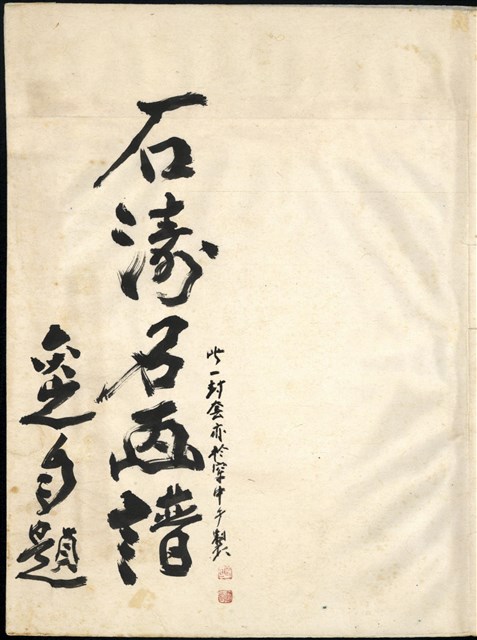 此一封套亦於窂中手製
石濤名画譜
手題